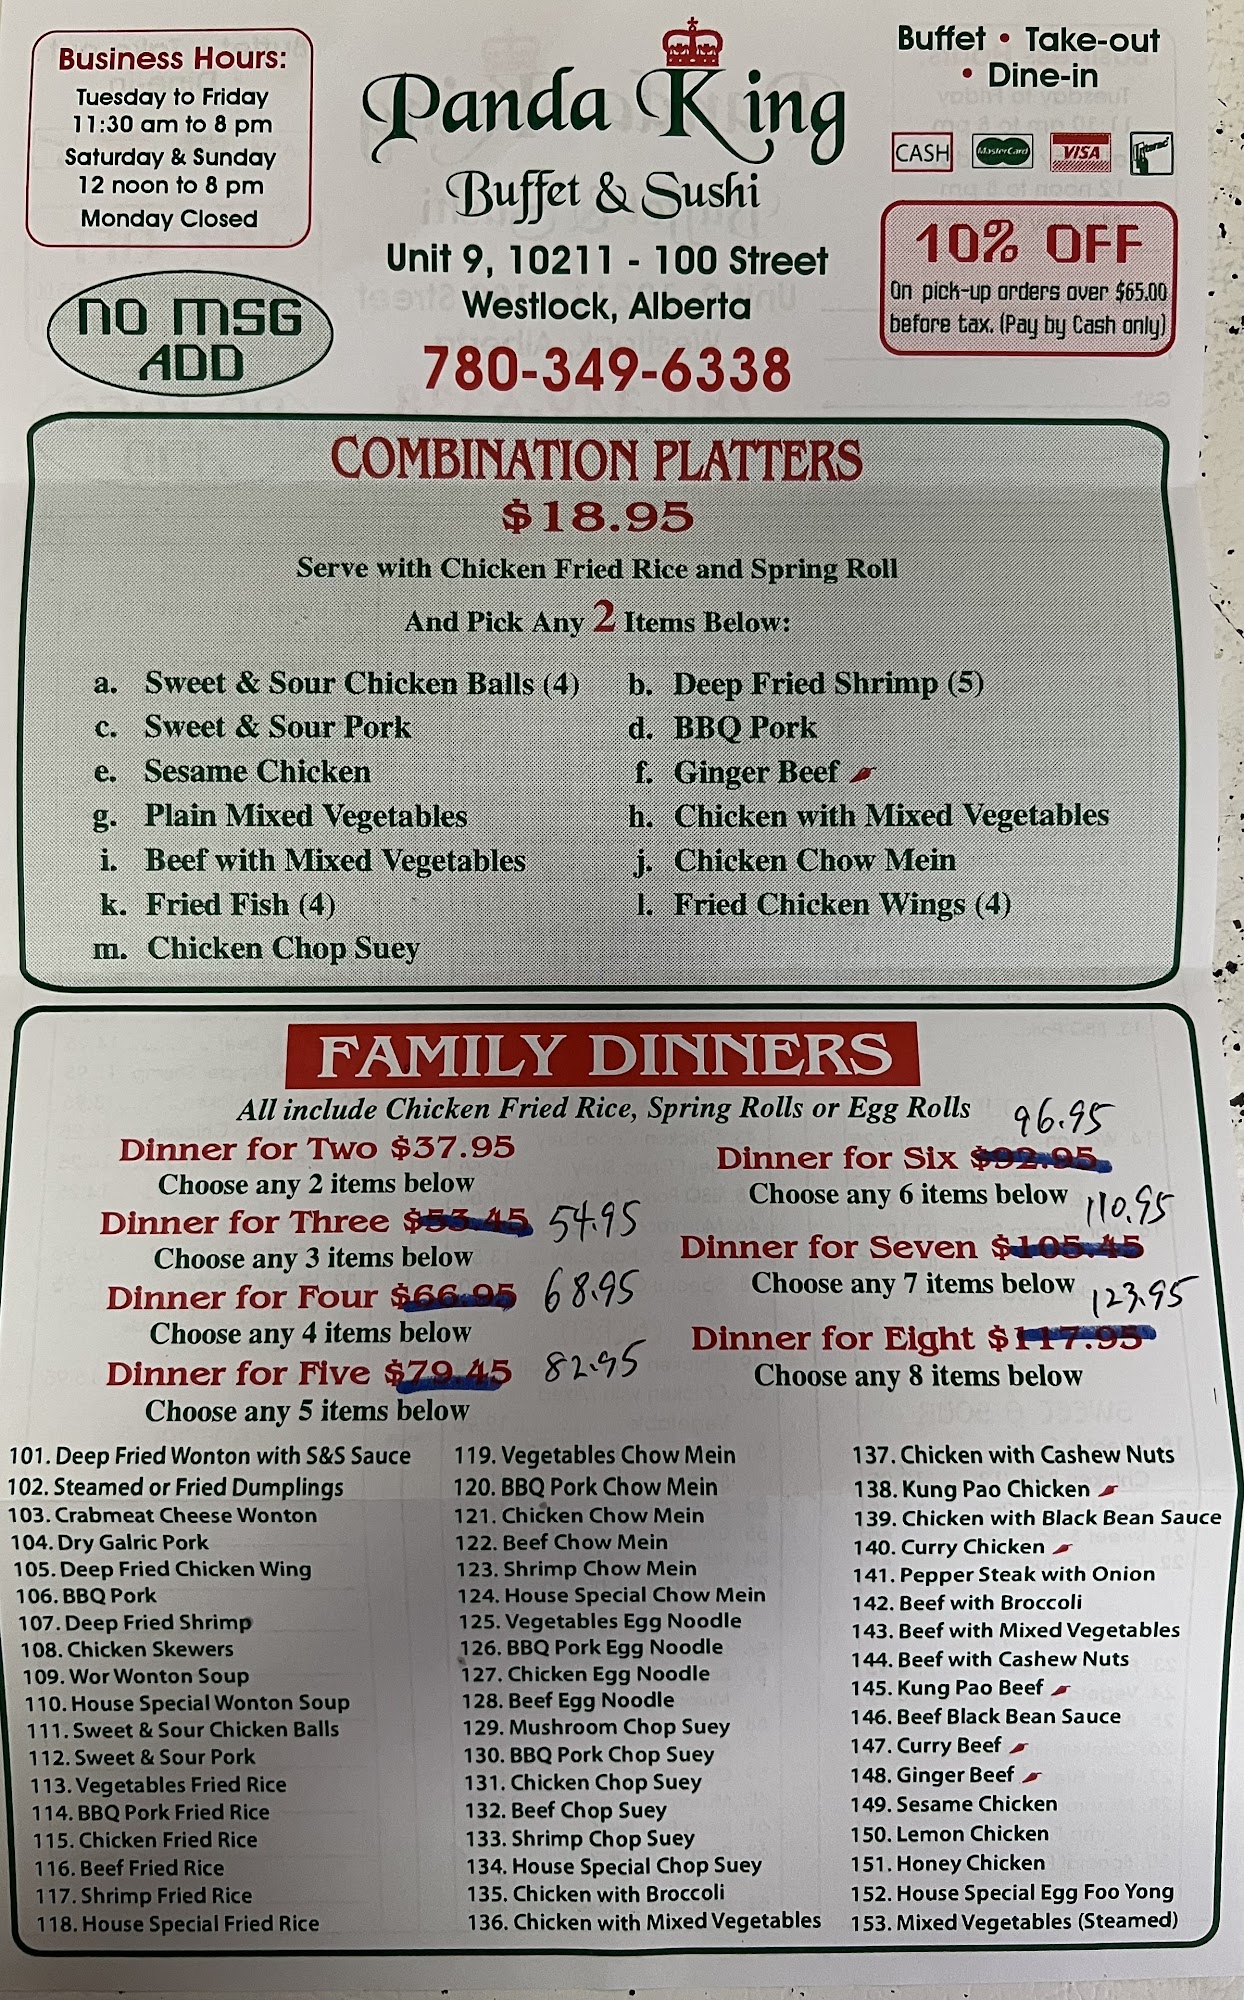 Business Hours:
Tuesday to Friday
11:30 am to 8 pm
Saturday & Sunday
12 noon to 8 pm
Monday Closed
NO MSG
ADD
Panda King
Buffet & Sushi
Unit 9, 10211 - 100 Street
Westlock, Alberta
780-349-6338
Buffet • Take-out
• Dine-in
CASH MasterCard VISA Interac
10% OFF
On pick-up orders over $65.00
before tax. (Pay by Cash only)
COMBINATION PLATTERS
$18.95
Serve with Chicken Fried Rice and Spring Roll
And Pick Any 2 Items Below:
a. Sweet & Sour Chicken Balls (4)
b. Deep Fried Shrimp (5)
c. Sweet & Sour Pork
d. BBQ Pork
e. Sesame Chicken
f. Ginger Beef
g. Plain Mixed Vegetables
h. Chicken with Mixed Vegetables
i. Beef with Mixed Vegetables
j. Chicken Chow Mein
k. Fried Fish (4)
l. Fried Chicken Wings (4)
m. Chicken Chop Suey
FAMILY DINNERS
All include Chicken Fried Rice, Spring Rolls or Egg Rolls
Dinner for Two $37.95
Choose any 2 items below
Dinner for Three $53.45 54.95
Choose any 3 items below
Dinner for Four $66.95 68.95
Choose any 4 items below
Dinner for Five $79.45 82.95
Choose any 5 items below
96.95
Dinner for Six $92.95
Choose any 6 items below
110.95
Dinner for Seven $105.45
Choose any 7 items below
123.95
Dinner for Eight $117.95
Choose any 8 items below
101. Deep Fried Wonton with S&S Sauce
102. Steamed or Fried Dumplings
103. Crabmeat Cheese Wonton
104. Dry Galric Pork
105. Deep Fried Chicken Wing
106. BBQ Pork
107. Deep Fried Shrimp
108. Chicken Skewers
109. Wor Wonton Soup
110. House Special Wonton Soup
111. Sweet & Sour Chicken Balls
112. Sweet & Sour Pork
113. Vegetables Fried Rice
114. BBQ Pork Fried Rice
115. Chicken Fried Rice
116. Beef Fried Rice
117. Shrimp Fried Rice
118. House Special Fried Rice
119. Vegetables Chow Mein
120. BBQ Pork Chow Mein
121. Chicken Chow Mein
122. Beef Chow Mein
123. Shrimp Chow Mein
124. House Special Chow Mein
125. Vegetables Egg Noodle
126. BBQ Pork Egg Noodle
127. Chicken Egg Noodle
128. Beef Egg Noodle
129. Mushroom Chop Suey
130. BBQ Pork Chop Suey
131. Chicken Chop Suey
132. Beef Chop Suey
133. Shrimp Chop Suey
134. House Special Chop Suey
135. Chicken with Broccoli
136. Chicken with Mixed Vegetables
137. Chicken with Cashew Nuts
138. Kung Pao Chicken
139. Chicken with Black Bean Sauce
140. Curry Chicken
141. Pepper Steak with Onion
142. Beef with Broccoli
143. Beef with Mixed Vegetables
144. Beef with Cashew Nuts
145. Kung Pao Beef
146. Beef Black Bean Sauce
147. Curry Beef
148. Ginger Beef
149. Sesame Chicken
150. Lemon Chicken
151. Honey Chicken
152. House Special Egg Foo Yong
153. Mixed Vegetables (Steamed)